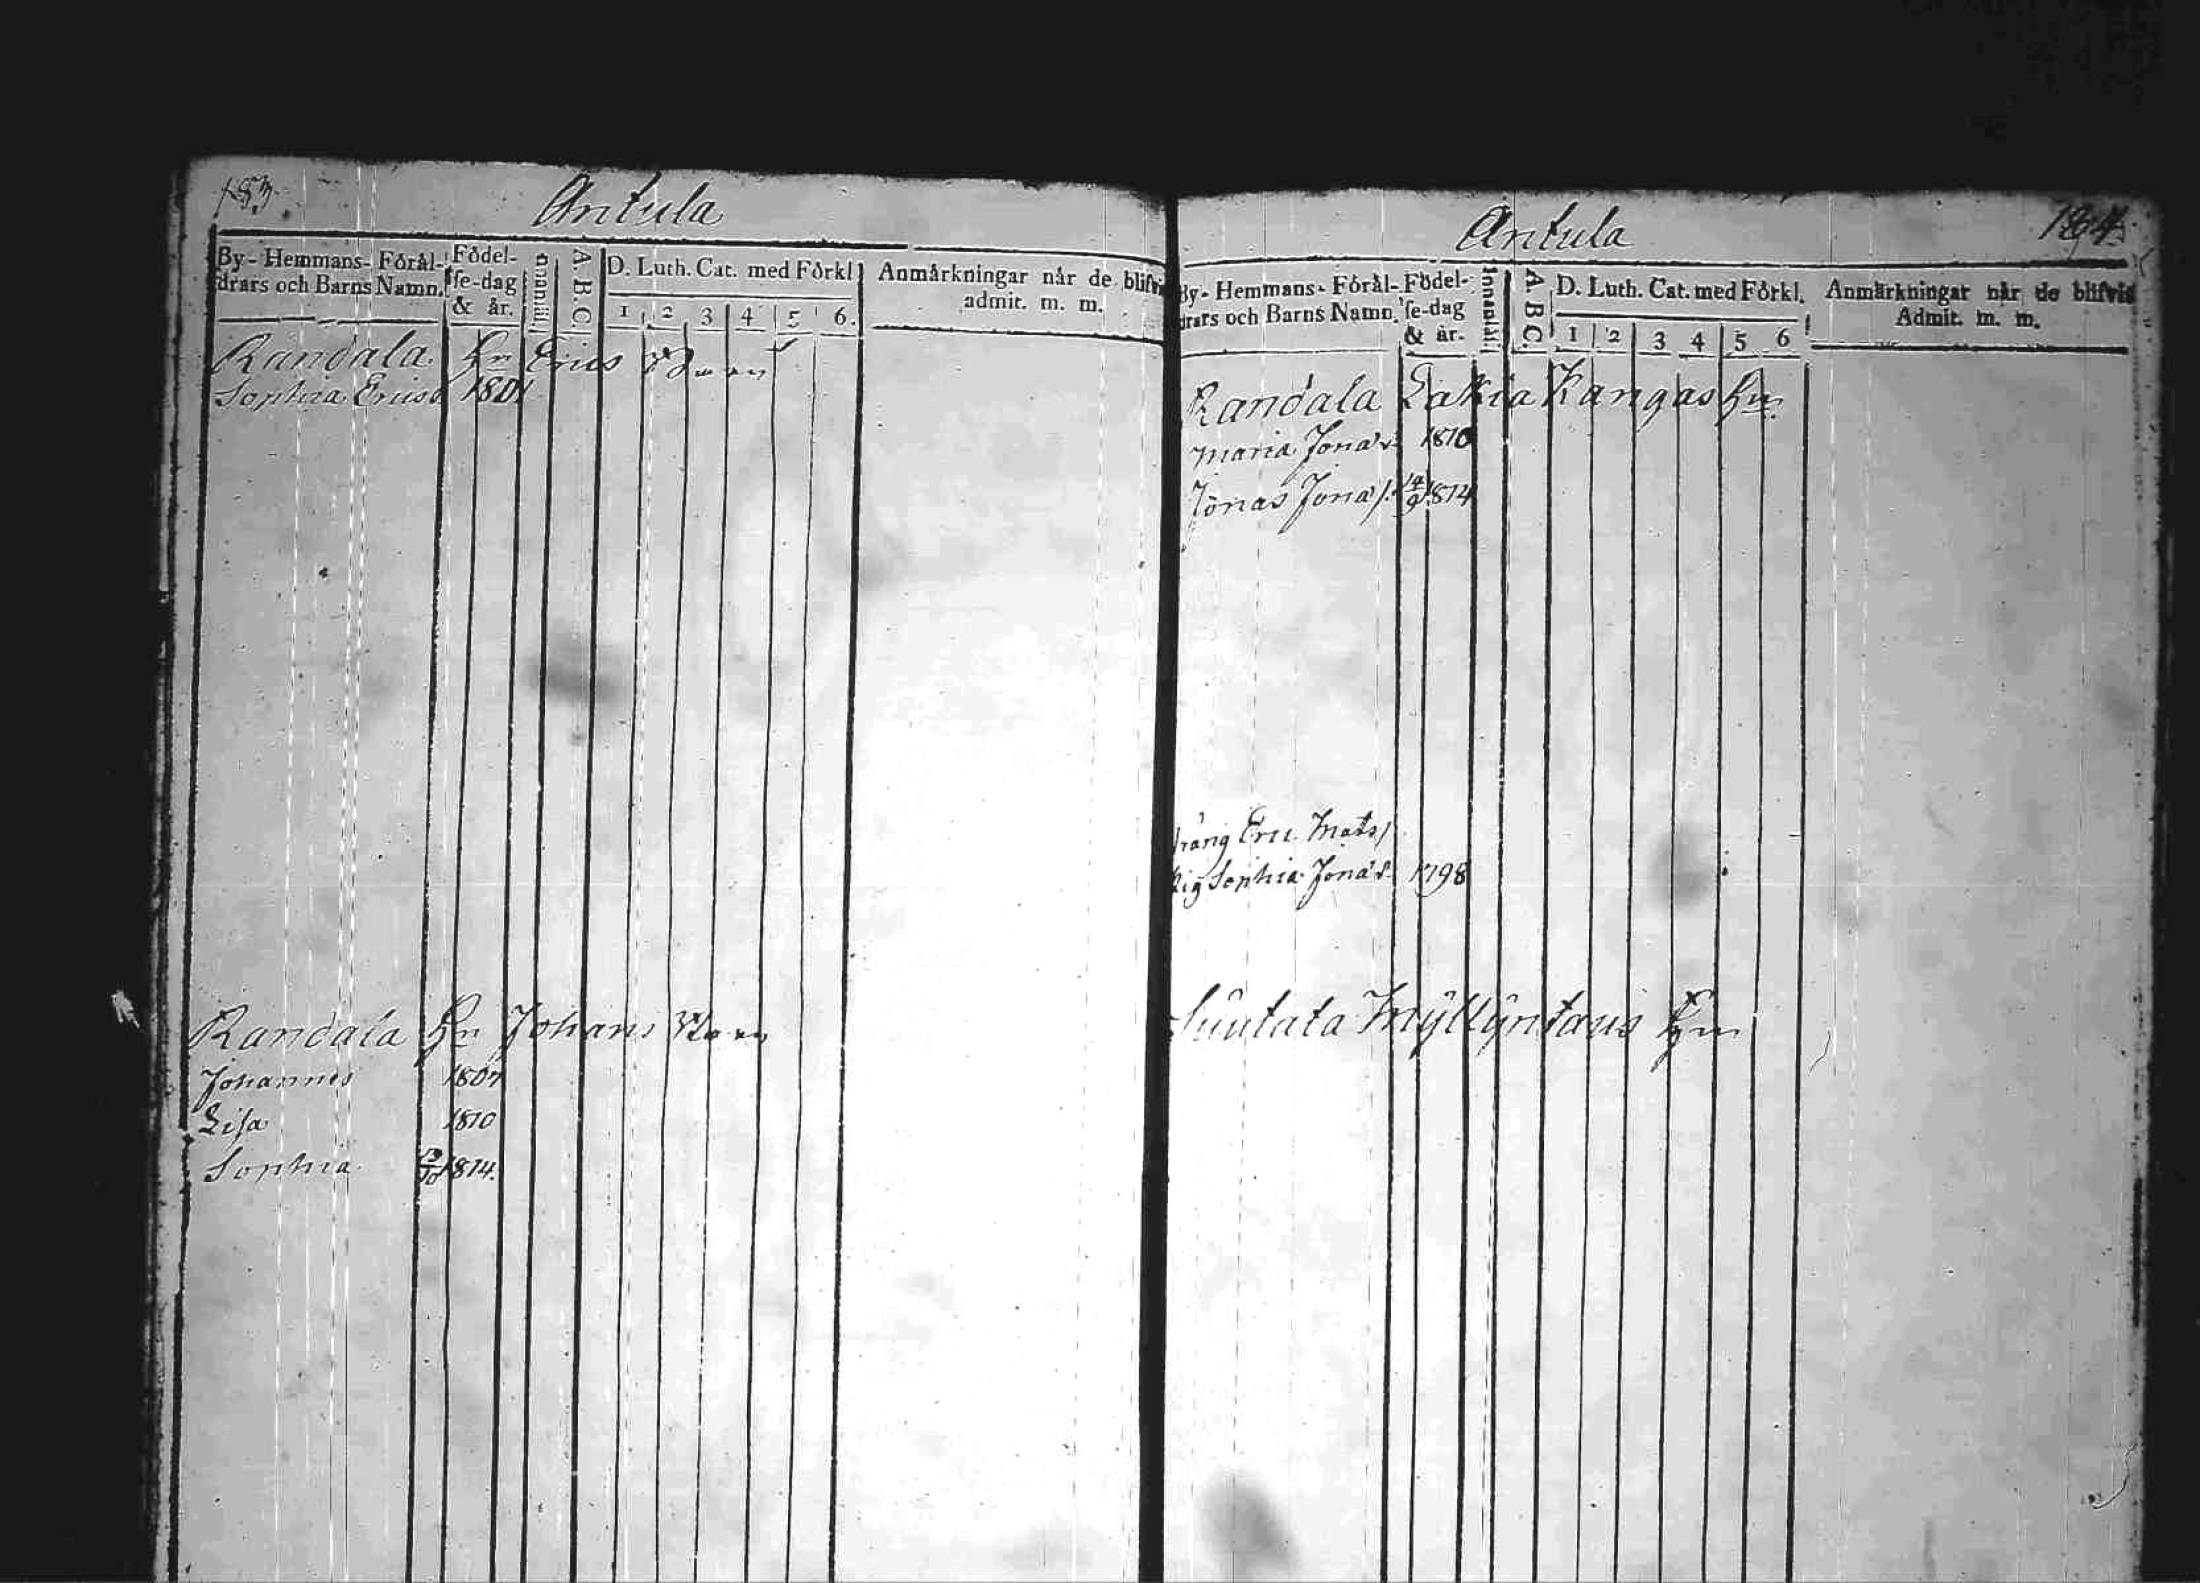 183.
Antula
By-Hemmans-Förål-
drars och Barns Namn.
Födel-
se-dag
& år.
Innantil.
A. B. C.
D. Luth. Cat. med Förkl
1 2 3 4 5 6.
Anmärkningar når de blifvit
admit. m. m.
Randala Hn Erics Barn
Sophia Ericsd 1801
Randala Hn Johans Barn
Johannes 1807
Lisa 1810
Sophia 1814.
Antula
184.
By-Hemmans-Förål-
drars och Barns Namn.
Födel-
se-dag
& år.
Innantil.
A. B. C.
D. Luth. Cat. med Förkl.
1 2 3 4 5 6
Anmärkningar når de blifvit
Admit. m. m.
Randala Lakia Kangas
Maria Jonæd. 1810
Jonas Jonæ/. 14/9 1814
Dräng Eric Mats/
Pig Sophia Jonæd. 1798
Myllyntaus